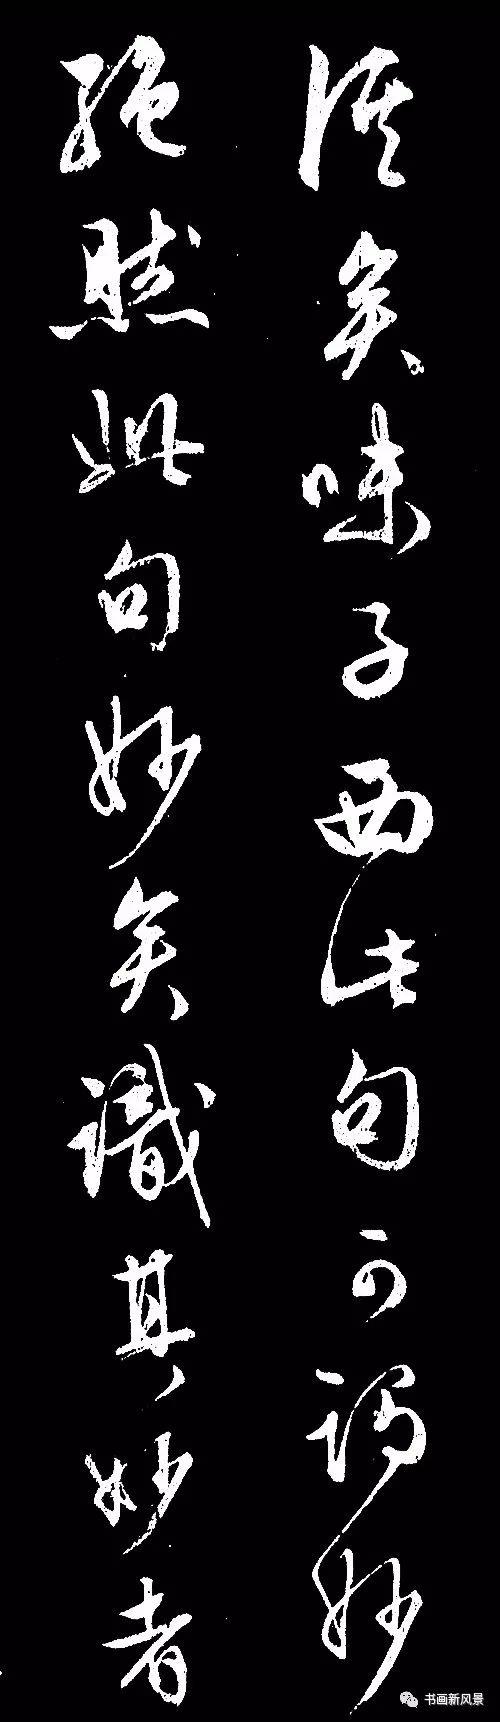 溪矣味子西此句可謂妙
絕然此句妙矣識其妙者
书画新风景